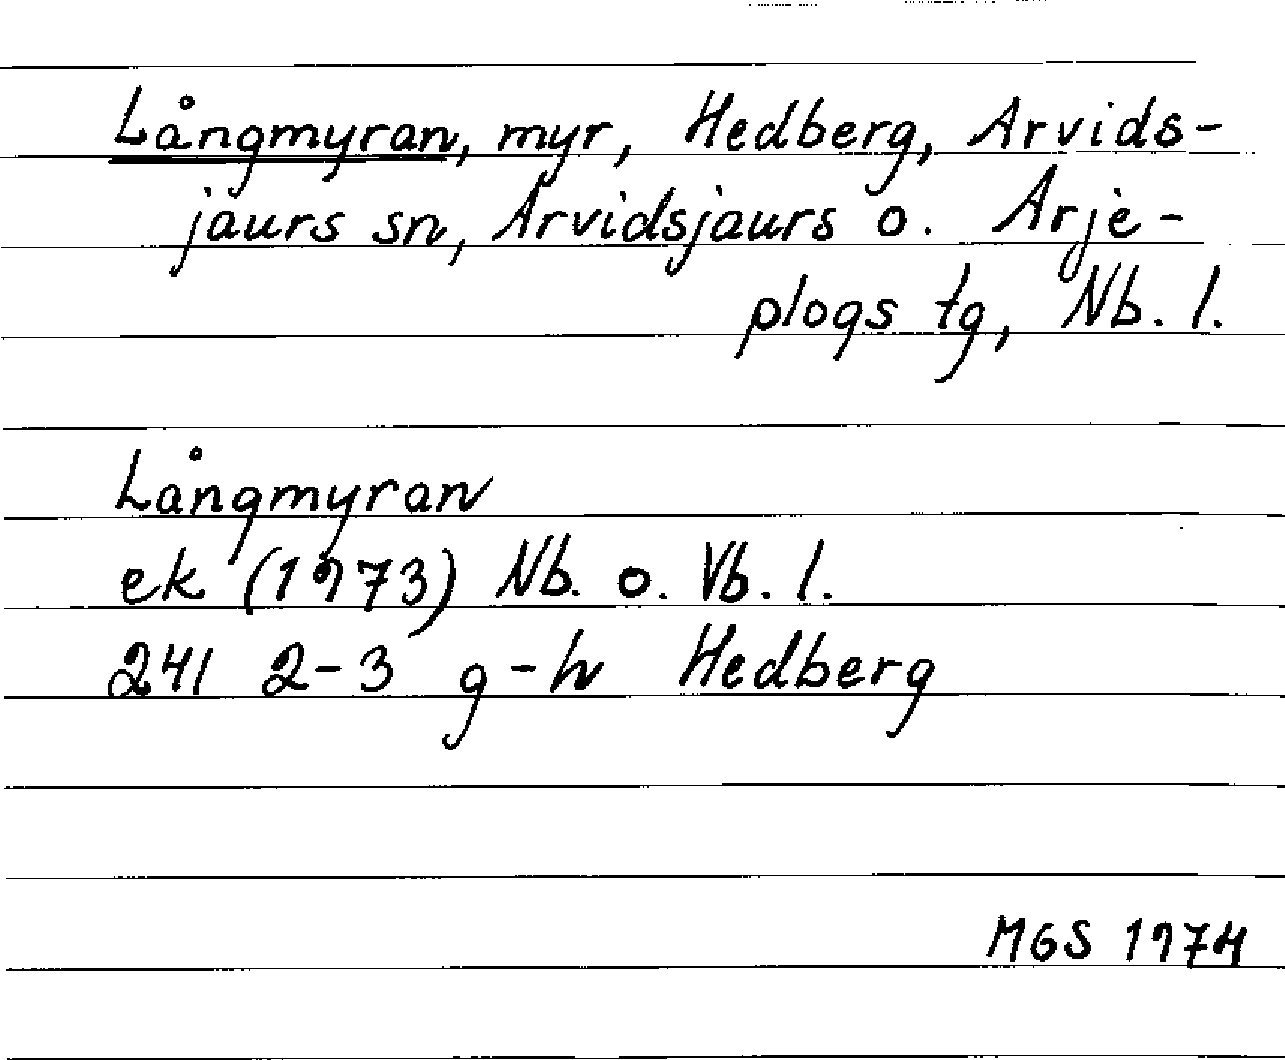 Långmyran, myr, Hedberg, Arvids-
jaurs sn, Arvidsjaurs o. Arje-
plogs tg, Nb. l.
Långmyran
ek (1973) Nb. o. Vb. l.
241 2-3 g-h Hedberg
MGS 1974